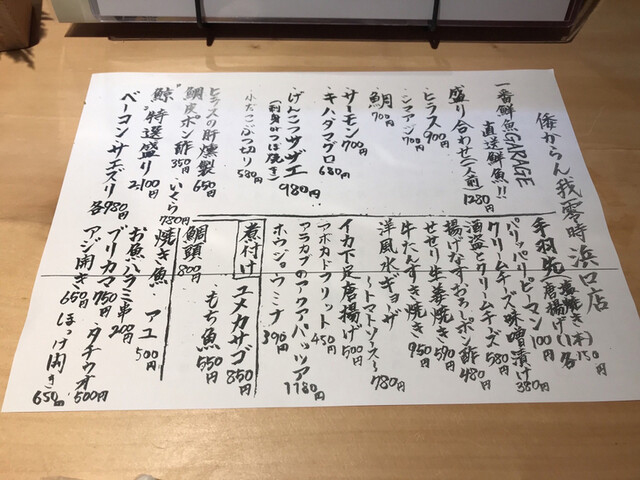 倭からん我零時 浜口店
一番鮮魚GARAGE
直送鮮魚!!
盛り合わせ(一人前)1280円
・ヒラス900円
・シマアジ700円
・鯛700円
・サーモン700円
・キハダマグロ680円
・げんこつサザエ980円
(刺身かつぼ焼き)
・小だこぶつ切り580円
ヒラスの肝燻製650円
鯛皮ポン酢350円 いくら780円
"鯨"特選盛り2.100円
ベーコン・サエズリ各980円
手羽先 塩焼き(1本)150円
唐揚げ(1名)
パリッパリピーマン100円
クリームチーズ味噌漬け380円
酒盗とクリームチーズ580円
揚げなすおろしポン酢480円
せせり生姜焼き590円
牛たんすき焼き950円
洋風水ギョーザ
〜トマトソース〜780円
イカ下足唐揚げ500円
アボカドフリット450円
アラカブのアクアパッツア1180円
ホウジョウミナ390円
煮付け ユメカサゴ850円
鯛頭800円 もち魚550円
焼き魚 アユ500円
お魚ハラミ串200円
ブリカマ750円 タチウオ500円
アジ開き650円 ほっけ開き650円